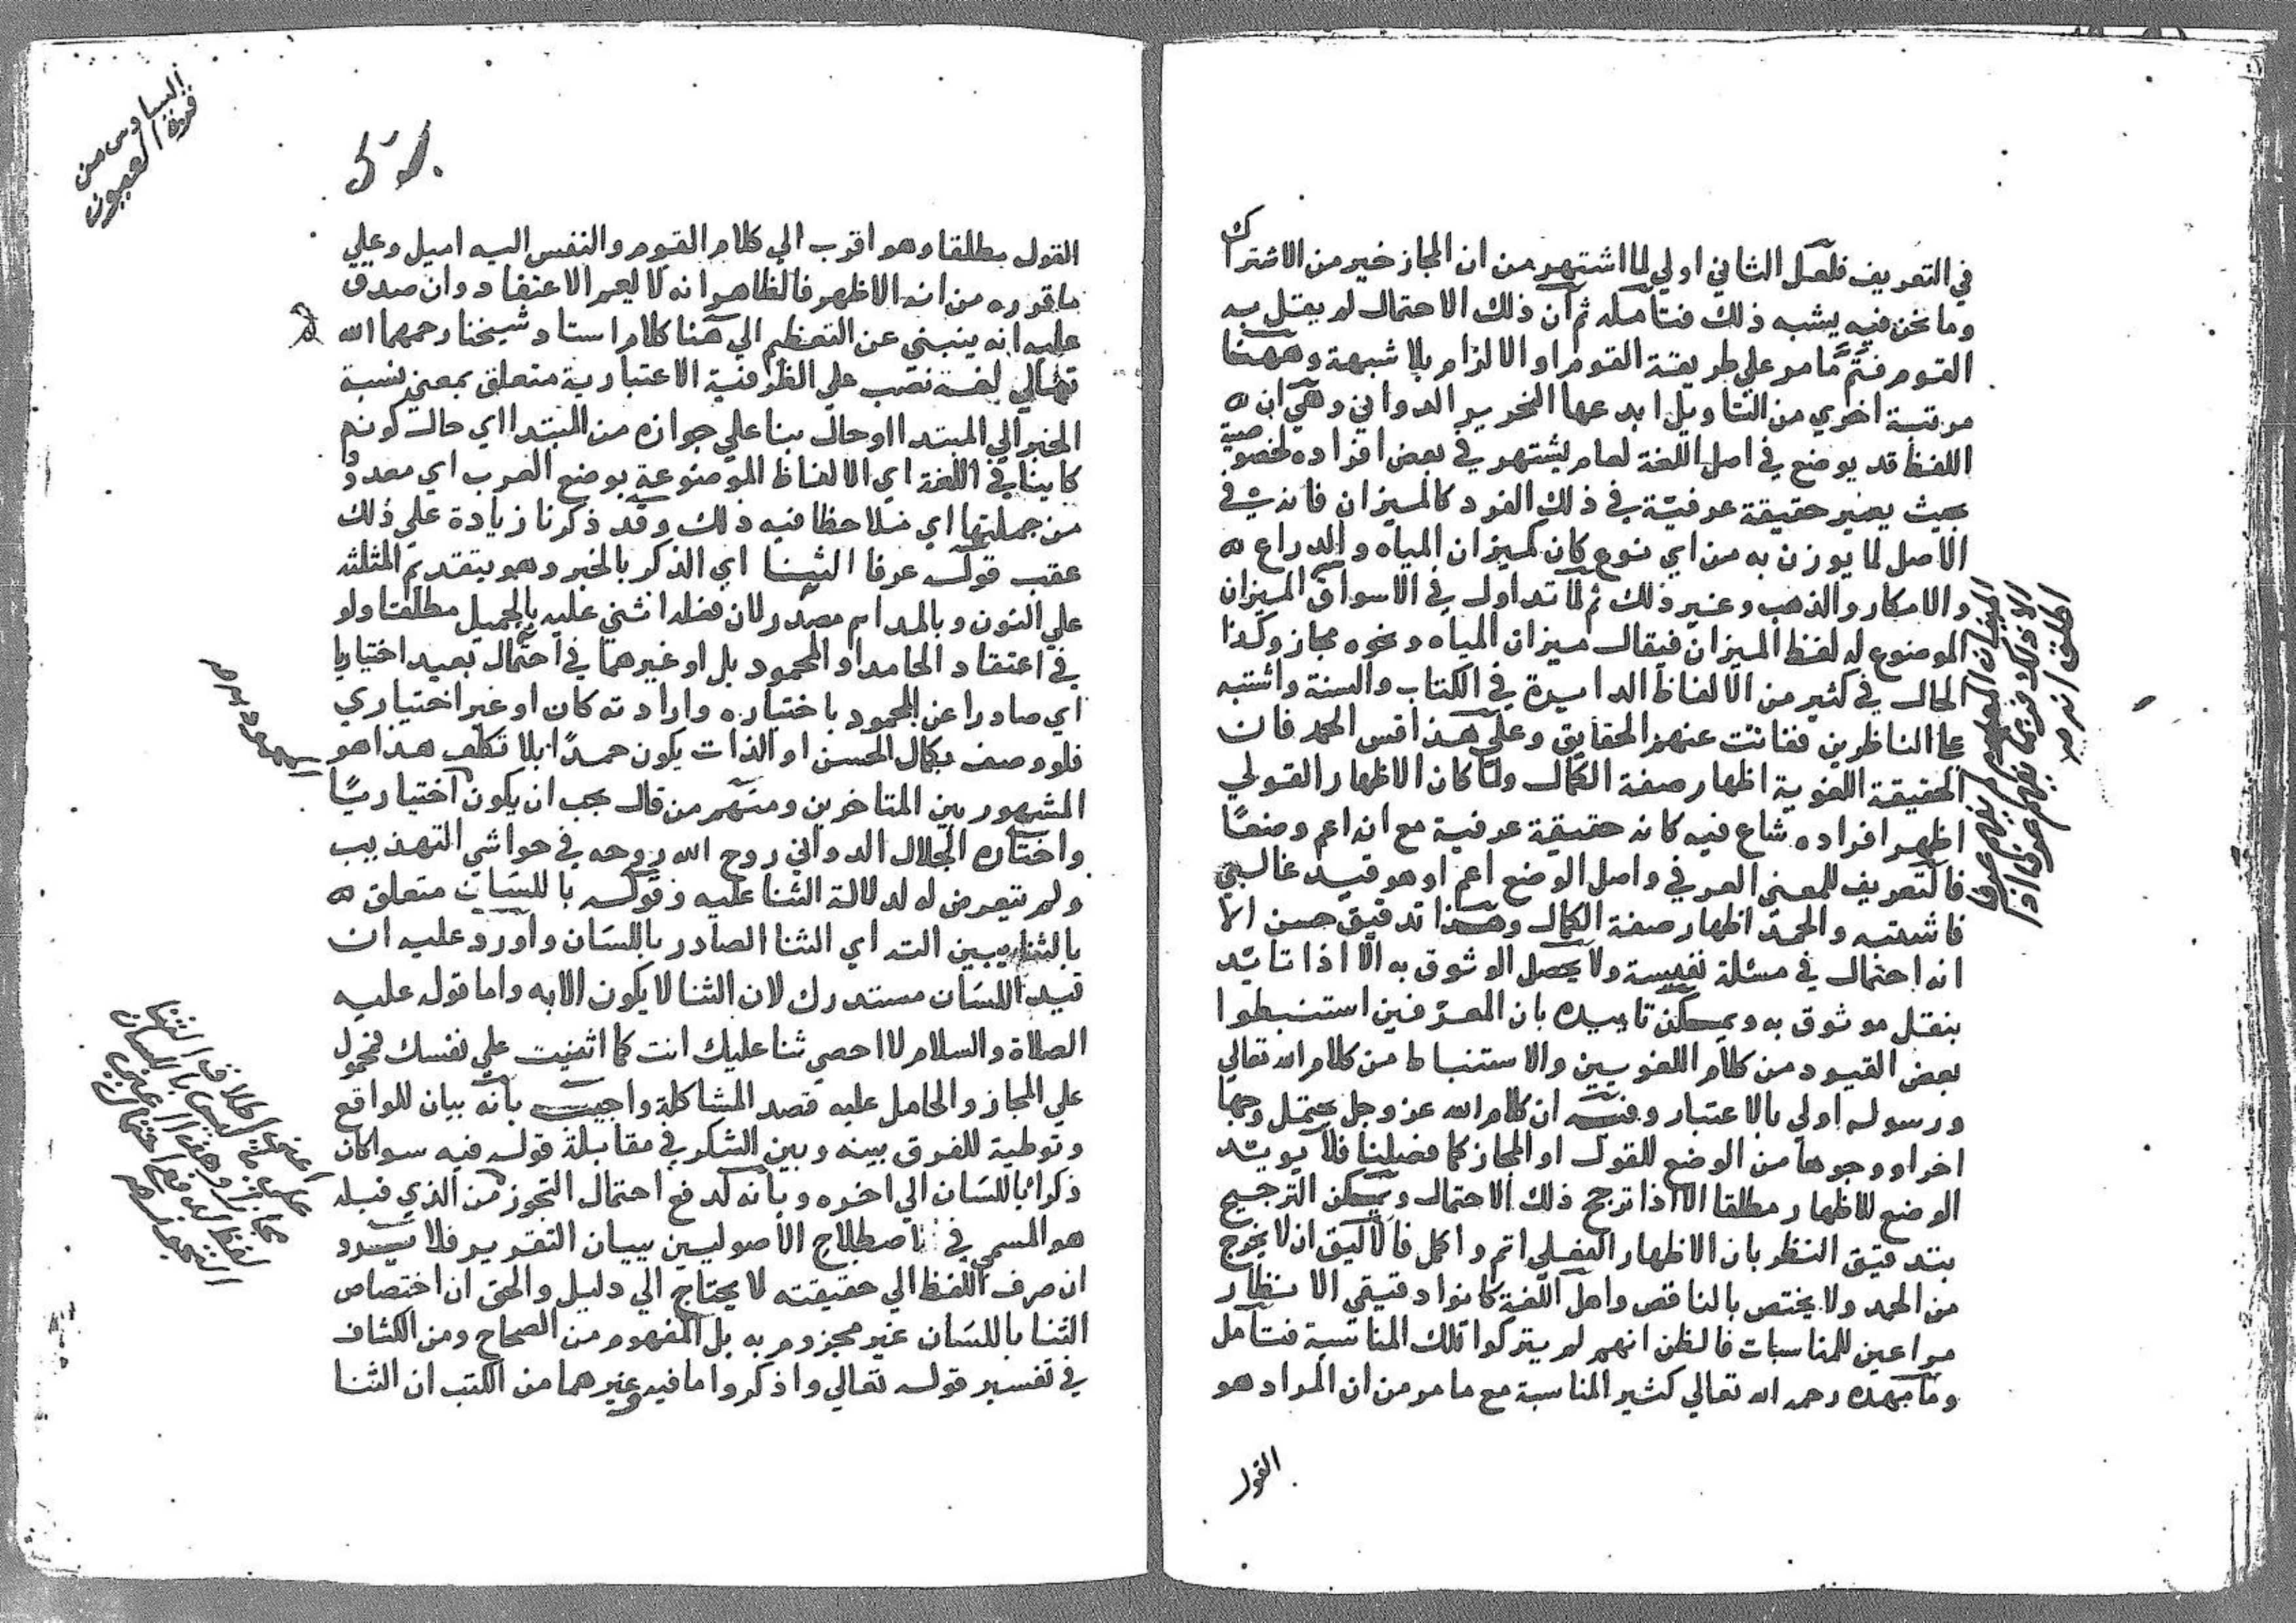 في التعريف فلعل الثاني اولي لما اشتهر من ان المجاز خير من الاشتراك
وما نحن فيه يشبه ذلك فتامله ثم ان ذلك الاحتمال لم يقل به
القوم فتم ما مر علي طريقة القوم او الالزام بلا شبهة وههنا
مرتبة اخري من التاويل ابدعها النحرير الدواني وهي ان
اللفظ قد يوضع في اصل اللغة لعام يشتهر في بعض افراده لخصوصية
بحيث يصير حقيقة عرفية في ذلك الفرد كالميزان فانه في
الاصل لما يوزن به من اي نوع كان كميزان المياه والدراع
والامكار والذهب وغير ذلك ثم لما تداول في الاسواق الميزان
الموضوع له لفظ الميزان فيقال ميزان المياه ونحوه مجاز وكذا
الحال في كثير من الالفاظ الدايرة في الكتاب والسنة واشتبه
علي الناظرين ففاتت عنهم الحقايق وعلي هذا قس الحمد فان
الحقيقة اللغوية اظهار صفة الكمال ولما كان الاظهار القولي
اظهر افراده شاع فيه كانه حقيقة عرفية مع انه اعم وضعًا
فالتعريف للمعني العرفي واصل الوضع اعم او هو قيد غالبي
فاشتبه والحمد اظهار صفة الكمال وهذا تدقيق حسن الا
انه احتمال في مسئلة نفيسة ولا يحصل الوثوق به الا اذا تايد
بنقل موثوق به ويمكن تاييده بان المعرفين استنبطوا
بعض القيود من كلام اللغويين والاستنباط من كلام الله تعالي
ورسوله اولي بالاعتبار وفيه ان كلام الله عز وجل يحتمل وجها
اخر او وجوها من الوضع للقول او المجاز كما فصلنا فلا يويد
الوضع للاظهار مطلقا الا اذا ترجح ذلك الاحتمال ويمكن الترجيح
بتدقيق النظر بان الاظهار الفعلي اتم واكمل فالاليق ان لا يخرج
من الحمد ولا يختص بالناقص واهل اللغة كانوا دقيقي الانظار
مراعين للمناسبات فالظن انهم لم يتركوا تلك المناسبة فتامل
وما مهده رحمه الله تعالي كثير المناسبة مع ما مر من ان المراد هو
القول
السادس من
قرة العيون
51
القول مطلقا وهو اقرب الي كلام القوم والنفس اليه اميل وعلي
ما قرره من انه الاظهر فالظاهر انه لا يعم الاعتقاد وان صدق
عليه انه ينبني عن التعظيم الي هنا كلام استاد شيخنا رحمهما الله
تعالي لغة نصب علي الظرفية الاعتبارية متعلق بمعني نسبة
الخبر الي المبتدا او حال بنا علي جوازه من المبتدا اي حال كونه
كاينا في اللغة اي الالفاظ الموضوعة بوضع العرب اي معدود
من جملتها اي ملاحظا فيه ذلك وقد ذكرنا زيادة علي ذلك
عقب قوله عرفا الثنا اي الذكر بالخير وهو بتقديم المثلثه
علي النون وبالمد اسم مصدر لان فعله اثني عليه بالجميل مطلقا ولو
في اعتقاد الحامد او المحمود بل او غيرهما في احتمال بعيد اختياريا
اي صادرا عن المحمود باختياره وارادته كان او غير اختياري
فلو وصف بكمال الحسن او الذات يكون حمدًا بلا تكلف هذا هو
المشهور بين المتاخرين ومنهم من قال يجب ان يكون اختياريًا
واختاره الجلال الدواني روح الله روحه في حواشي التهذيب
ولم يتعرض له لدلالة الثنا عليه وقوله باللسان متعلق
بالثنا يبين اي الثنا الصادر باللسان واورد عليه ان
قيد اللسان مستدرك لان الثنا لا يكون الا به واما قوله عليه
الصلاة والسلام لا احصي ثنا عليك انت كما اثنيت علي نفسك فمحمول
علي المجاز والحامل عليه قصد المشاكلة واجيب بانه بيان للواقع
وتوطية للفرق بينه وبين الشكر في مقابلة قوله فيه سوا كان
ذكرا باللسان الي اخره وبانه لدفع احتمال التجوز من الذي قبله
هو المسمي في اصطلاح الاصوليين ببيان التقرير فلا يرد
ان صرف اللفظ الي حقيقته لا يحتاج الي دليل والحق ان اختصاص
الثنا باللسان غير مجزوم به بل المفهوم من الصحاح ومن الكشاف
في تفسير قوله تعالي واذكروا ما فيه وغيرهما من الكتب ان الثنا